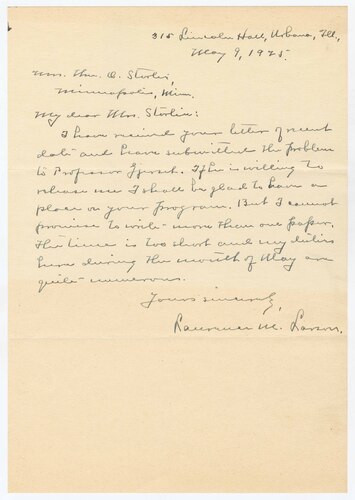 315 Lincoln Hall, Urbana, Ill,
May 9, 1925.
Mrs. Wm. O. Storlie,
Minneapolis, Minn.
My dear Mrs. Storlie:
I have received your letter of recent
date and have submitted the problem
to Professor Gjerset. If he is willing to
release me I shall be glad to have a
place on your program. But I cannot
promise to write more than one paper.
The time is too short and my duties
here during the month of May are
quite numerous.
Yours sincerely,
Laurence M. Larson.